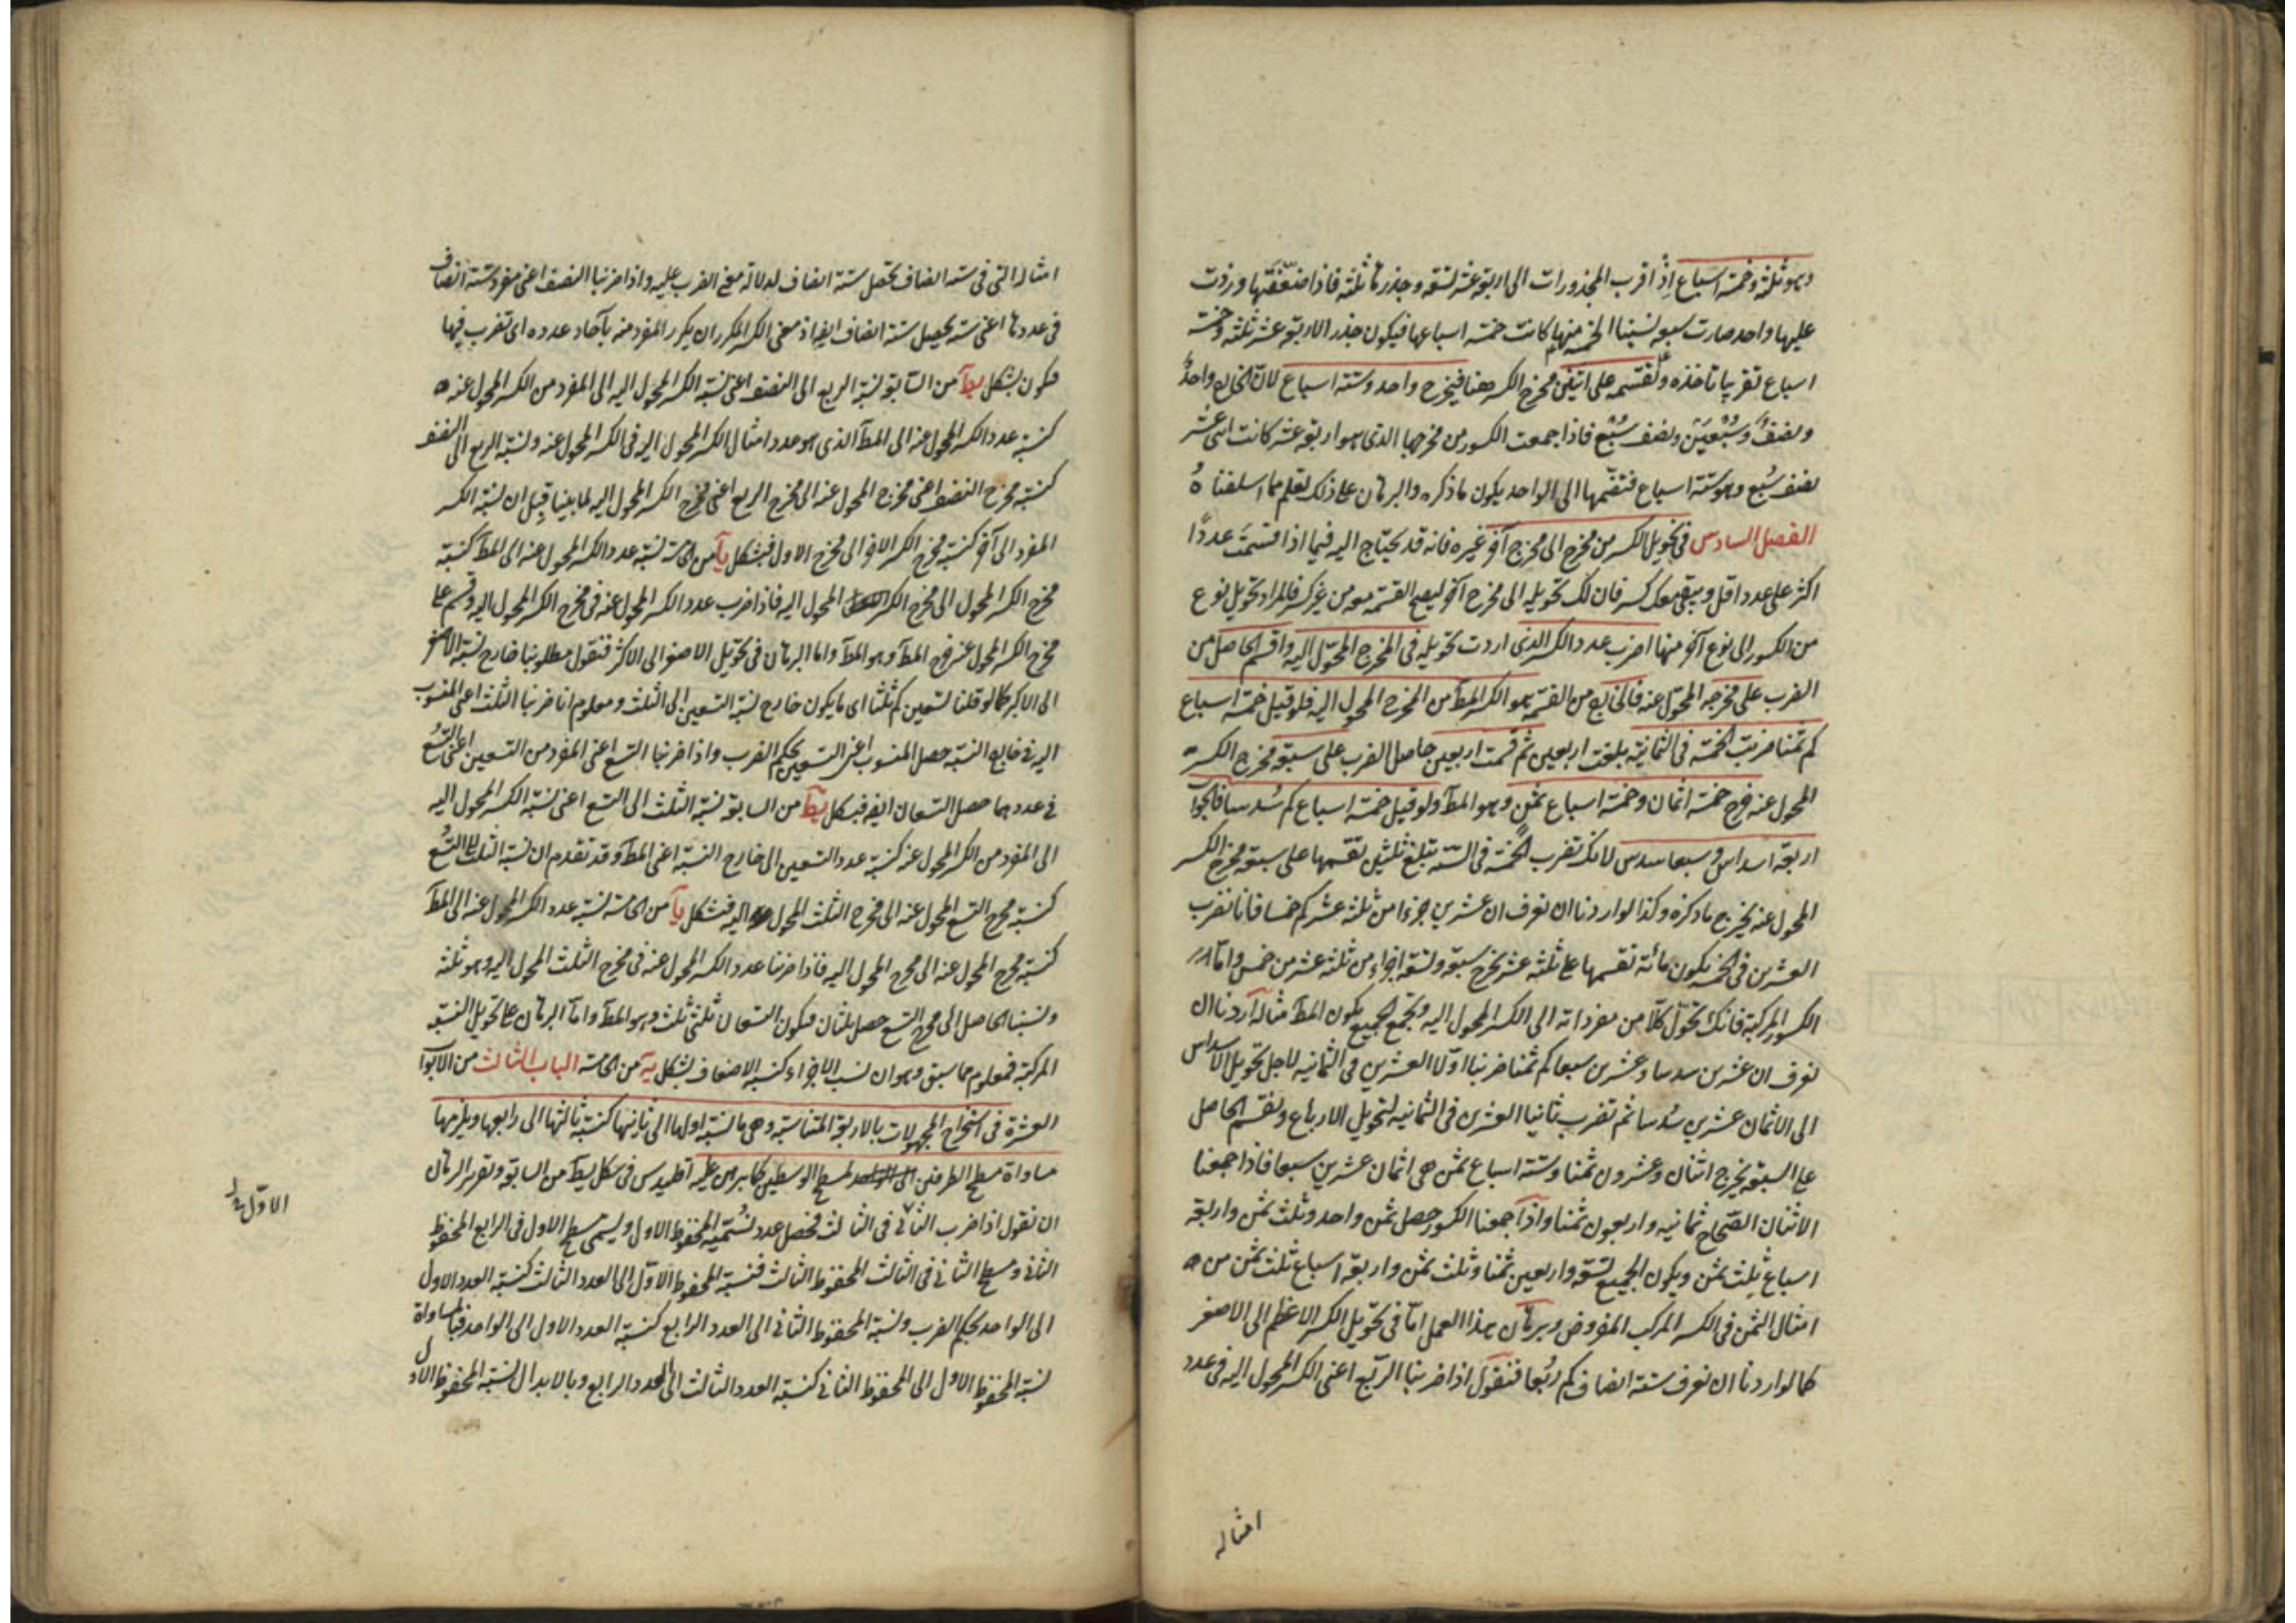 وهو ثلثة وخمسة اسباع اذ اقرب المجذورات الى اربعة عشر تسعة وجذرها ثلثة فاذا ضعّفتها وزدت
عليها واحد صارت سبعة نسبنا الخمسة منها كانت خمسة اسباعها فيكون جذر الاربعة عشر ثلثة وخمسة
اسباع تقريبا تأخذه وتقسمه على اثنين مخرج الكسر هنا فيخرج واحد وستة اسباع لان الخارج واحدٌ
ونصفٌ وسُبْعَين ونصف سُبْع فاذا جمعت الكسور من مخرجها الذى هو اربعة عشر كانت اثنى عشر
نصف سُبع وهو ستة اسباع فتضمّها الى الواحد يكون ما ذكره والبرهان على ذلك يعلم مما اسلفناهُ
الفصل السادس فى تحويل الكسر من مخرج الى مخرج آخر غيره فانه قد يحتاج اليه فيما اذا قسمتَ عددًا
اكثر على عدد اقل ويبقى معك كسر فان لك تحويله الى مخرج آخر ليصح القسمة معه من غير كسر فالمراد تحويل نوع
من الكسور الى نوع آخر منها اضرب عدد الكسر الذى اردت تحويله فى المخرج المحوّل اليه واقسم الحاصل من
الضرب على مخرجه المحوّل عنه فالخارج من القسمة هو الكسر المط من المخرج المحول اليه فلو قيل خمسة اسباع
كم ثمنا ضربت الخمسة فى الثمانية بلغت اربعين ثم قسمت اربعين حاصل الضرب على سبعة مخرج الكسر
المحول عنه خرج خمسة اثمان وخمسة اسباع ثمن وهو المط ولو قيل خمسة اسباع كم سُدسا فالجواب
اربعة اسداس وسبعا سدس لانك تضرب الخمسة فى الستة تبلغ ثلثين تقسمها على سبعة مخرج الكسر
المحول عنه يخرج ما ذكره وكذا لو اردنا ان نعرف ان عشرين جزءا من ثلثة عشر كم خمسا فانا نضرب
العشرين فى الخمسة يكون مائة نقسمها على ثلثة عشر يخرج سبعة وتسعة اجزاء من ثلثة عشر من خمس واما
الكسور المركبة فانك تحوّل كلا من مفرداته الى الكسر المحول اليه وتجمع الجميع يكون المط مثاله اردنا ان
نعرف ان عشرين سدسا وعشرين سبعا كم ثمنا ضربنا اوّلا العشرين فى الثمانية لاجل تحويل الاسداس
الى الاثمان عشرين سُدسا ثم نضرب ثانيا العشرين فى الثمانية لتحويل الارباع ونقسم الحاصل
على السبعة يخرج اثنان وعشرون ثمنا وستة اسباع ثمن هى اثمان عشرين سبعا فاذا جمعنا
الاثنان الصّحاح ثمانية واربعون ثمنا واذا جمعنا الكسور حصل ثمن واحد وثلث ثمن واربعة
اسباع ثلث ثمن ويكون الجميع تسعة واربعين ثمنا وثلث ثمن واربعة اسباع ثلث ثمن من
امثال الثمن فى الكسر المركب المفروض وبرهان هذا العمل امّا فى تحويل الكسر الاعظم الى الاصغر
كما لو اردنا ان نعرف ستة انصاف كم ربُعا فنقول اذا ضربنا الربّع اعنى الكسر المحول اليه فى عدد
امثاله
امثاله التى فى ستة انصاف يحصل ستة انصاف لدلالة معنى الضرب عليه واذا ضربنا النصف اعنى مفرد ستة انصاف
فى عددها اعنى ستة يحصل ستة انصاف ايضا اذ معنى الكسر المكرر ان يكرر المفرد منه بآحاد عدده اى تضرب فيها
فيكون بشكل يط من السابعة نسبة الربع الى النصف اعنى نسبة الكسر المحول اليه الى المفرد من الكسر المحول عنه
كنسبة عدد الكسر المحول عنه الى المط الذى هو عدد امثال الكسر المحول اليه فى الكسر المحول عنه ونسبة الربع الى النصف
كنسبة مخرج النصف اعنى مخرج المحول عنه الى مخرج الربع اعنى مخرج الكسر المحول اليه لما بينا قبل ان نسبة الكسر
المفرد الى آخر كنسبة مخرج الكسر الاخر الى مخرج الاول فبشكل يآ من الخامسة نسبة عدد الكسر المحول عنه الى المط كنسبة
مخرج الكسر المحول الى مخرج الكسر المحول اليه فاذا ضرب عدد الكسر المحول عنه فى مخرج الكسر المحول اليه وقسم على
مخرج الكسر المحول عنه خرج المط وهو المط واما البرهان فى تحويل الاصغر الى الاكثر فنقول مطلوبنا خارج نسبة الاصغر
الى الاكبر كما لو قلنا تسعين كم ثلثا اى ما يكون خارج نسبة التسعين الى الثلث ومعلوم انا ضربنا الثلث اعنى المنسوب
اليه فى خارج النسبة حصل المنسوب اعنى التسعين بحكم الضرب واذا ضربنا التسع اعنى المفرد من التسعين اعنى التسُع
فى عددهما حصل التسعان ايضا فبشكل يط من السابعة نسبة الثلث الى التسع اعنى نسبة الكسر المحول اليه
الى المفرد من الكسر المحول عنه كنسبة عدد التسعين الى خارج النسبة اعنى المط وقد تقدم ان نسبة الثلث الى التسُع
كنسبة مخرج التسع المحول عنه الى مخرج الثلث المحول اليه فبشكل يآ من الخامسة نسبة عدد الكسر المحول عنه الى المط
كنسبة مخرج المحول عنه الى مخرج المحول اليه فاذا ضربنا عدد الكسر المحول عنه فى مخرج الثلث المحول اليه وهو ثلثة
ونسبنا الحاصل الى مخرج التسع حصل ثلثان فيكون التسعان ثلثى ثلث وهو المط واما البرهان على تحويل النسبة
المركبة فمعلوم مما سبق وهو ان نسب الاجزاء كنسبة الاضعاف بشكل يه من الخامسة الباب الثالث من الابواب
العشرة فى استخراج المجهولات بالاربعة المتناسبة وهى ما نسبة اولها الى ثانيها كنسبة ثالثها الى رابعها ويلزمها
مساواة مسطح الطرفين لمسطح الوسطين كما برهن عليه اقليدس فى شكل يط من السابعة وتقرير البرهان
ان نقول اذا ضرب الثانى فى الثالث فحصل عدد نُسمّيه المحفوظ الاول ويسمى مسطح الاول فى الرابع المحفوظ
الثانى ومسطح الثانى فى الثالث المحفوظ الثالث فنسبة المحفوظ الاوّل الى العدد الثالث كنسبة العدد الاول
الى الواحد بحكم الضرب ونسبة المحفوظ الثانى الى العدد الرابع كنسبة العدد الاول الى الواحد فبالمساواة
نسبة المحفوظ الاول الى المحفوظ الثانى كنسبة العدد الثالث الى العدد الرابع وبالابدال نسبة المحفوظ الاول
الاوّل